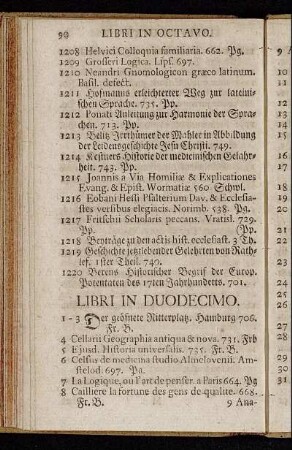 90 LIBRI IN OCTAVO.
1208 Helvici Colloquia familiaria. 662. Pg.
1209 Grosseri Logica. Lips. 697.
1210 Neandri Gnomologicon græco latinum.
Basil. defect.
1211 Hofmanns erleichterter Weg zur lateini-
schen Sprache. 735. Pp.
1212 Ponats Anleitung zur Harmonie der Spra-
chen. 713. Pp.
1213 Irrthümer der Mahler in Abbildung
der Leidensgeschichte Jesu Christi. 749.
1214 Kestners Historie der medicinischen Gelahr-
heit. 743. Pp.
1215 Joannis a Via Homiliæ & Explicationes
Evang. & Epist. Wormatiæ 560. Schwl.
1216 Eobani Hessi Psalterium Dav. & Ecclesia-
stes versibus elegiacis. Norimb. 538. Pg.
1217 Fritschii Scholaris peccans. Vratisl. 729.
Pp. (Pp.
1218 Beyträge zu den actis hist. ecclesiast. 3 Th.
1219 Geschichte jetzlebender Gelehrten von Rath-
lef. 1ster Theil. 740.
1220 Berens Historischer Begrif der Europ.
Potentaten des 17ten Jahrhunderts. 701.
LIBRI IN DUODECIMO.
1-3 Der geöfnete Ritterplatz. Hamburg 706.
Fr. B.
4 Cellarii Geographia antiqua & nova. 731. Frb
5 Ejusd. Historia universalis. 735. Fr. B.
6 Celsus de medicina studio Almelovenii. Am-
stelod: 697. Pa.
7 La Logique, ou l'art de penser. a Paris 664. Pg
8 Cailliere la fortune des gens de qualite. 668.
Fr. B. 9 Ana-